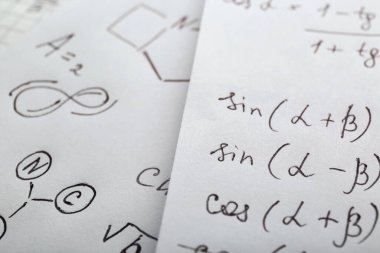 A=2
N
N
C
1 - tg
1 + tg
sin(α + β)
sin(α - β)
cos(α + β)